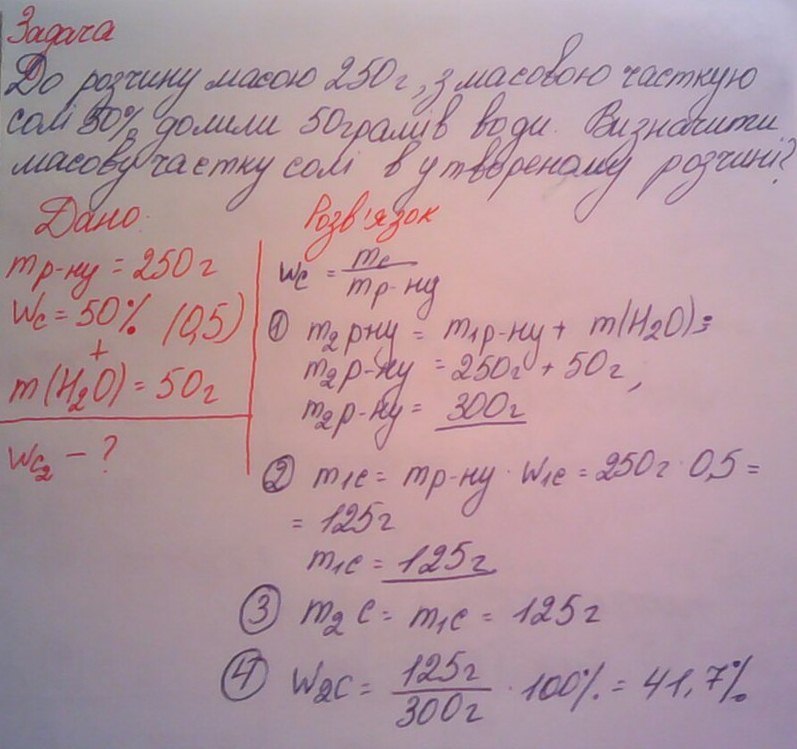 Задача
До розчину масою 250г, з масовою часткую
солі 50% долили 50грамів води. Визначити
масову частку солі в утвореному розчині?
Дано:
mр-ну = 250г
Wс = 50% (0,5)
+
m(H₂O) = 50г
Wc₂ – ?
Розв'язок
Wc = mc / mр-ну
① m₂р-ну = m₁р-ну + m(H₂O);
m₂р-ну = 250г + 50г,
m₂р-ну = 300г
② m₁c = mр-ну · W₁c = 250г · 0,5 =
= 125г
m₁c = 125г
③ m₂c = m₁c = 125г
④ W₂c = 125г / 300г · 100% = 41,7%